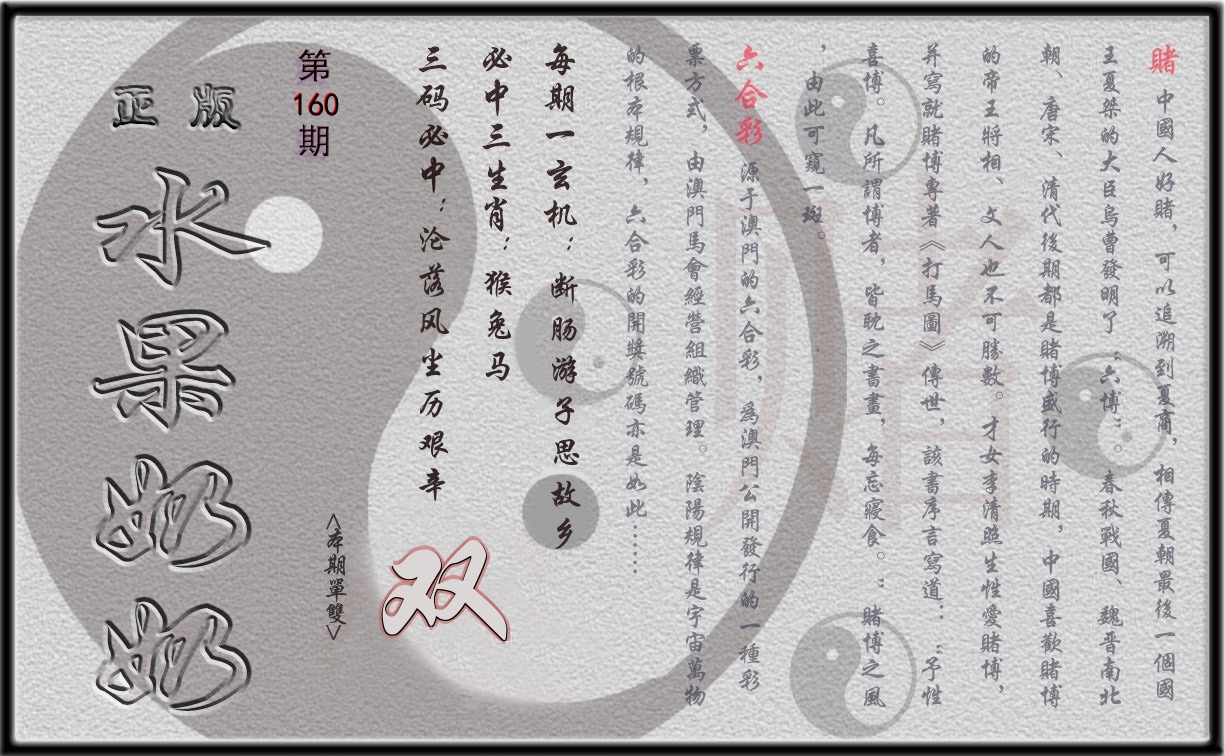 賭 中國人好賭，可以追溯到夏商，相傳夏朝最後一個國
王夏桀的大臣烏曹發明了“六博”。春秋戰國、魏晋南北
朝、唐宋、清代後期都是賭博盛行的時期，中國喜歡賭博
的帝王將相、文人也不可勝數。才女李清照生性愛賭博，
并寫就賭博專著《打馬圖》傳世，該書序言寫道：“予性
喜博。凡所謂博者，皆耽之書畫，每忘寢食。”賭博之風
，由此可窺一斑。
六合彩 源于澳門的六合彩，爲澳門公開發行的一種彩
票方式，由澳門馬會經營組織管理。陰陽規律是宇宙萬物
的根本規律，六合彩的開獎號碼亦是如此......
每期一玄机：断肠游子思故乡
必中三生肖：猴兔马
三码必中：沦落风尘历艰辛
双
<本期單雙>
第
160
期
正版
水果奶奶
賭